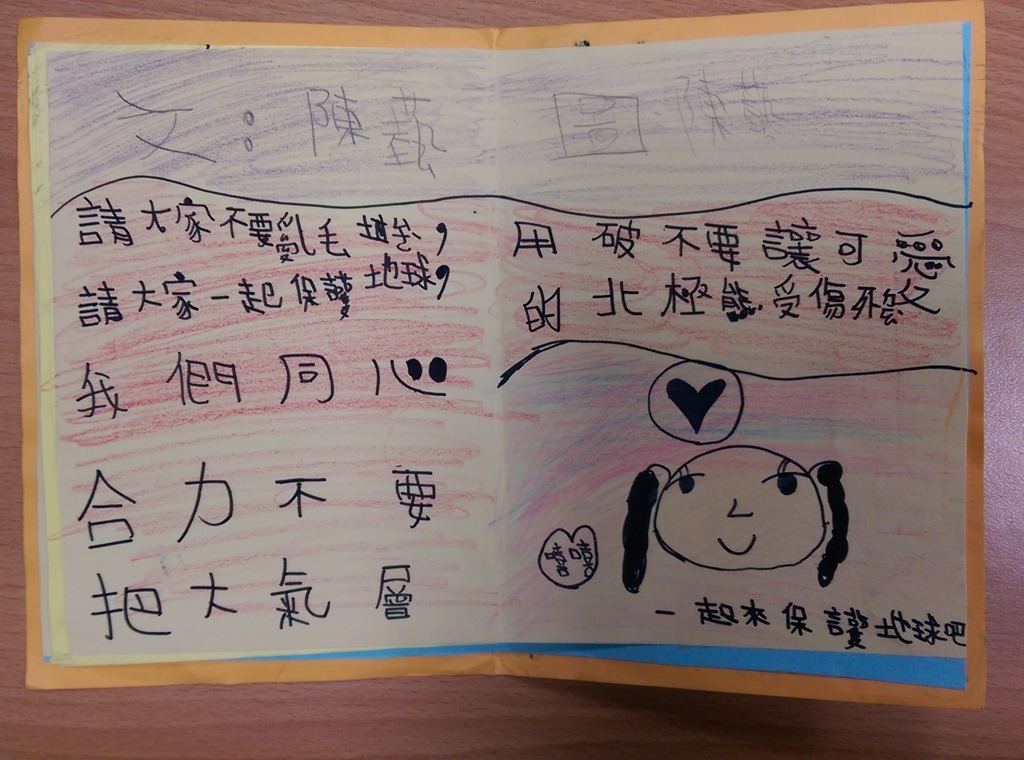 文：陳藝
請大家不要亂毛，
請大家一起保護地球，
我們同心
合力不要
把大氣層
圖 陳藝
用破不要讓可愛
的北極熊受傷死
嘻嘻
一起來保護地球吧